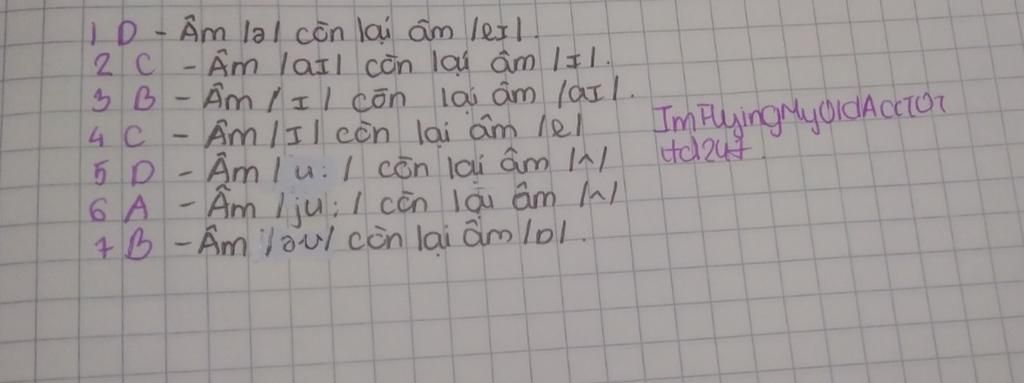 1 D - Âm /ə/ còn lại âm /eɪ/.
2 C - Âm /aɪ/ còn lại âm /ɪ/.
3 B - Âm /ɪ/ còn lại âm /aɪ/.
4 C - Âm /ɪ/ còn lại âm /e/
5 D - Âm /u:/ còn lại âm /ʌ/
6 A - Âm /ju:/ còn lại âm /ʌ/
7 B - Âm /əʊ/ còn lại âm /ɒ/.
ImFlyingMyOldAccTOT